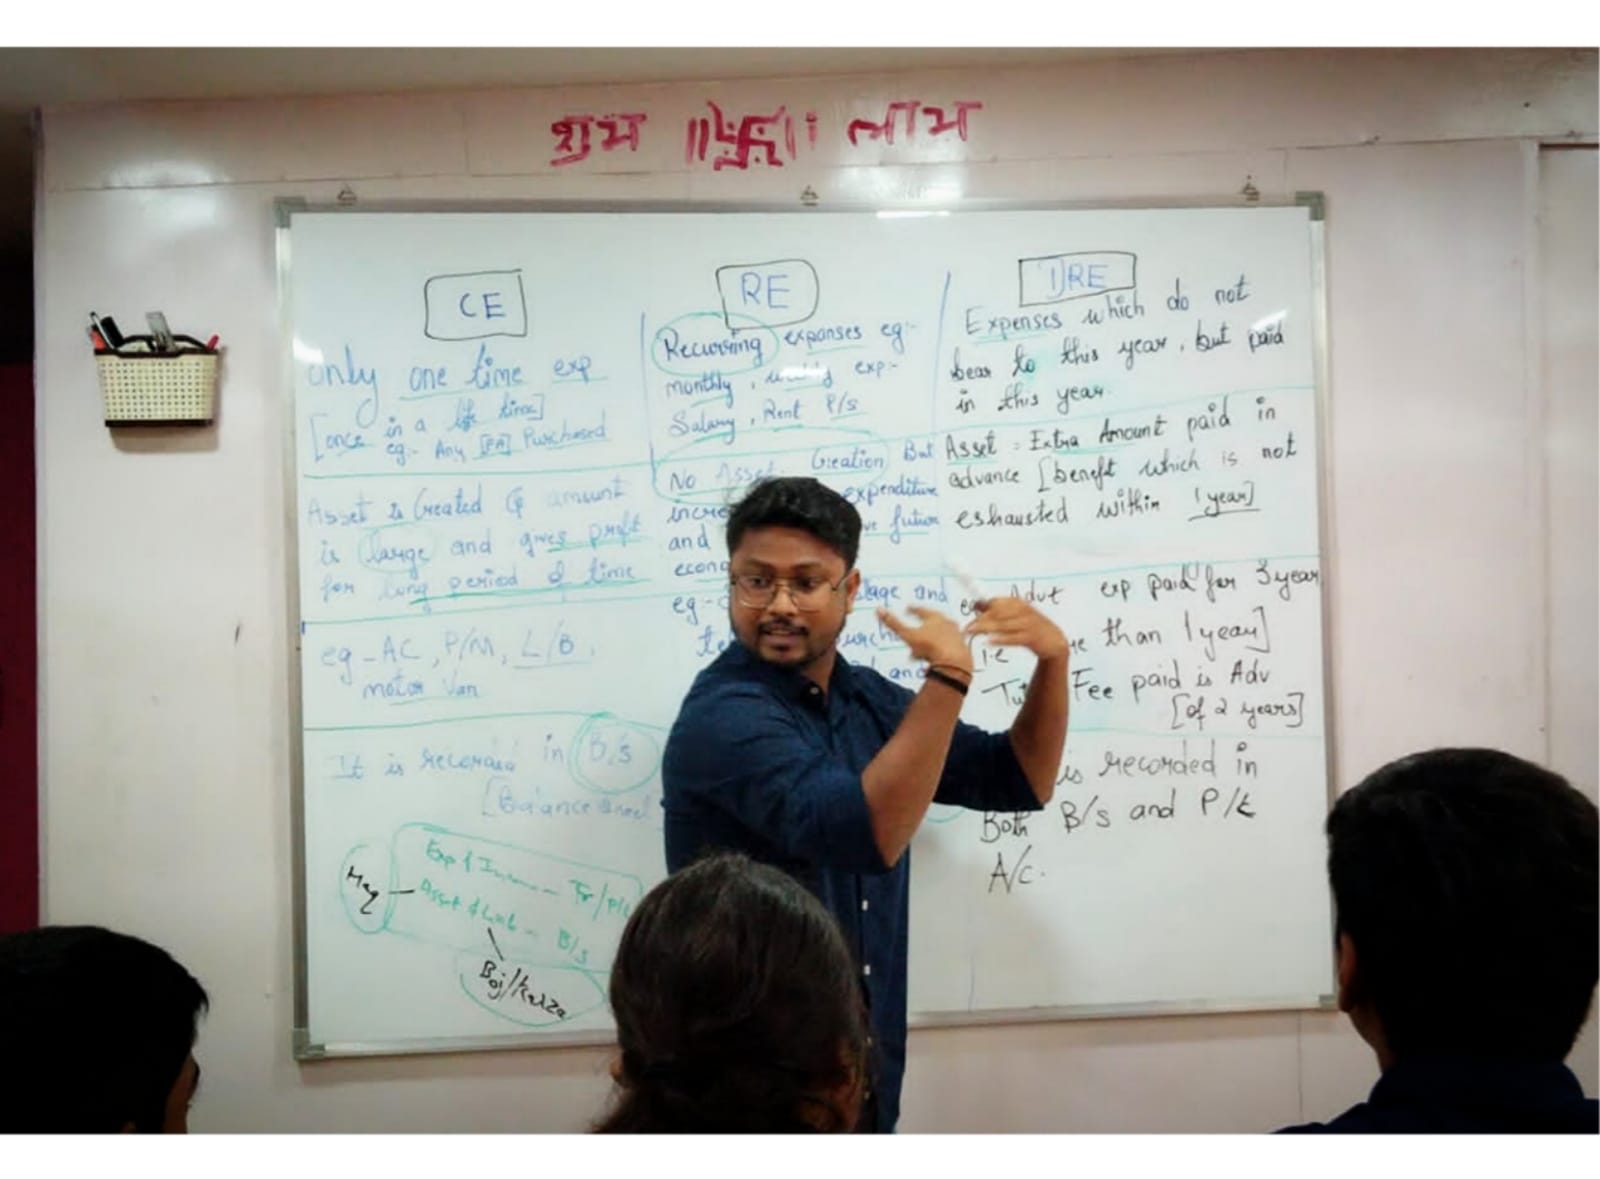 शुभ ॥卐॥ लाभ
CE
only one time exp
[once in a life time]
eg:- Any [FA] Purchased
Asset is Created & amount
is large and gives profit
for long period of time
eg - AC, P/M, L/B,
motor Van
It is recorded in B/s
[Balance
Exp & Income - Tr/P/L
Asset & Liab - B/s
Boj/Karza
RE
Recurring expanses eg:-
monthly, weekly exp:-
Salary, Rent P/s
No Asset Creation But
expenditure
and future
and
DRE
Expenses which do not
bear to this year, but paid
in this year.
Asset = Extra Amount paid in
advance [benefit which is not
eshausted within 1 year]
Advt exp paid for 3 year
i.e than 1 year]
Fee paid is Adv
[of 2 years]
is recorded in
Both B/s and P/L
A/c.